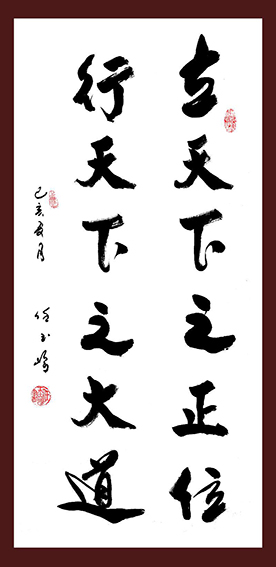 立天下之正位
行天下之大道
己亥年月
任玉岭